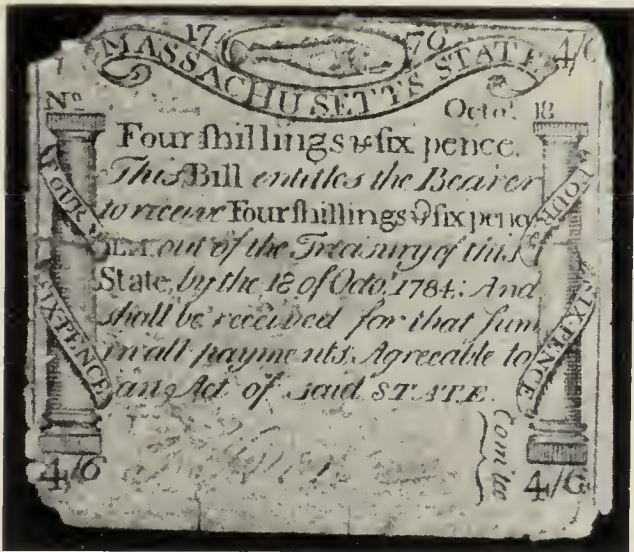 17 76
MASSACHUSETTS STATE 4/6
No Octo. 18
Four ſhillings & ſix pence.
This Bill entitles the Bearer
to receive Four ſhillings & ſix penc
L.M. out of the Treasury of this
State, by the 18 of Octo. 1784: And
ſhall be received for that ſum
in all payments. Agreeable to
an Act of said STATE.
FOUR
SIXPENCE
FOUR
SIXPENCE
Comtee
4/6 4/6